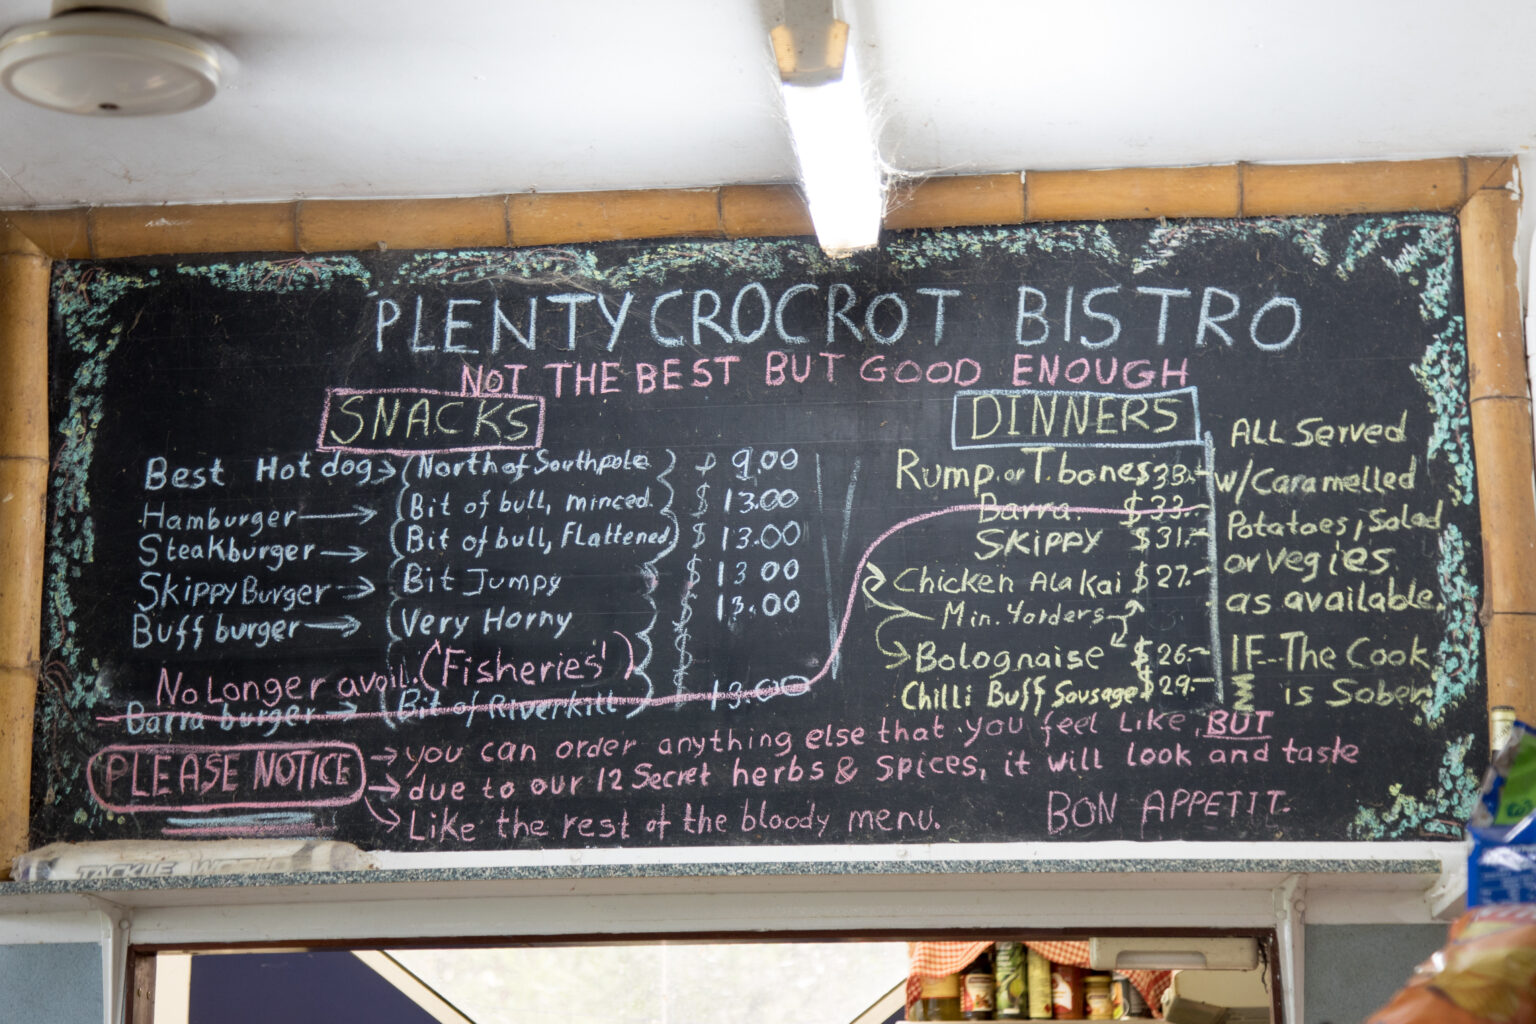 PLENTYCROCROT BISTRO
NOT THE BEST BUT GOOD ENOUGH
SNACKS
Best Hot dog → (North of Southpole) $ 9.00
Hamburger → (Bit of bull, minced.) $ 13.00
Steakburger → (Bit of bull, Flattened) $ 13.00
Skippy Burger → (Bit Jumpy) $ 13.00
Buff burger → (Very Horny) $ 13.00
No Longer avail. (Fisheries')
Barra burger → (Bit of Riverkill) $ 13.00
DINNERS
Rump. or T. bones $33.-
Barra. $33.-
Skippy $31.-
Chicken Ala Kai $27.-
Min. 4orders
Bolognaise $26.-
Chilli Buff Sousage $29.-
ALL Served
w/Caramelled
Potatoes, Salad
or vegies
as available,
IF The Cook
is Sober
PLEASE NOTICE
→ you can order anything else that you feel like, BUT
→ due to our 12 Secret herbs & spices, it will look and taste
→ Like the rest of the bloody menu.
BON APPETIT.
TACKLE WORLD